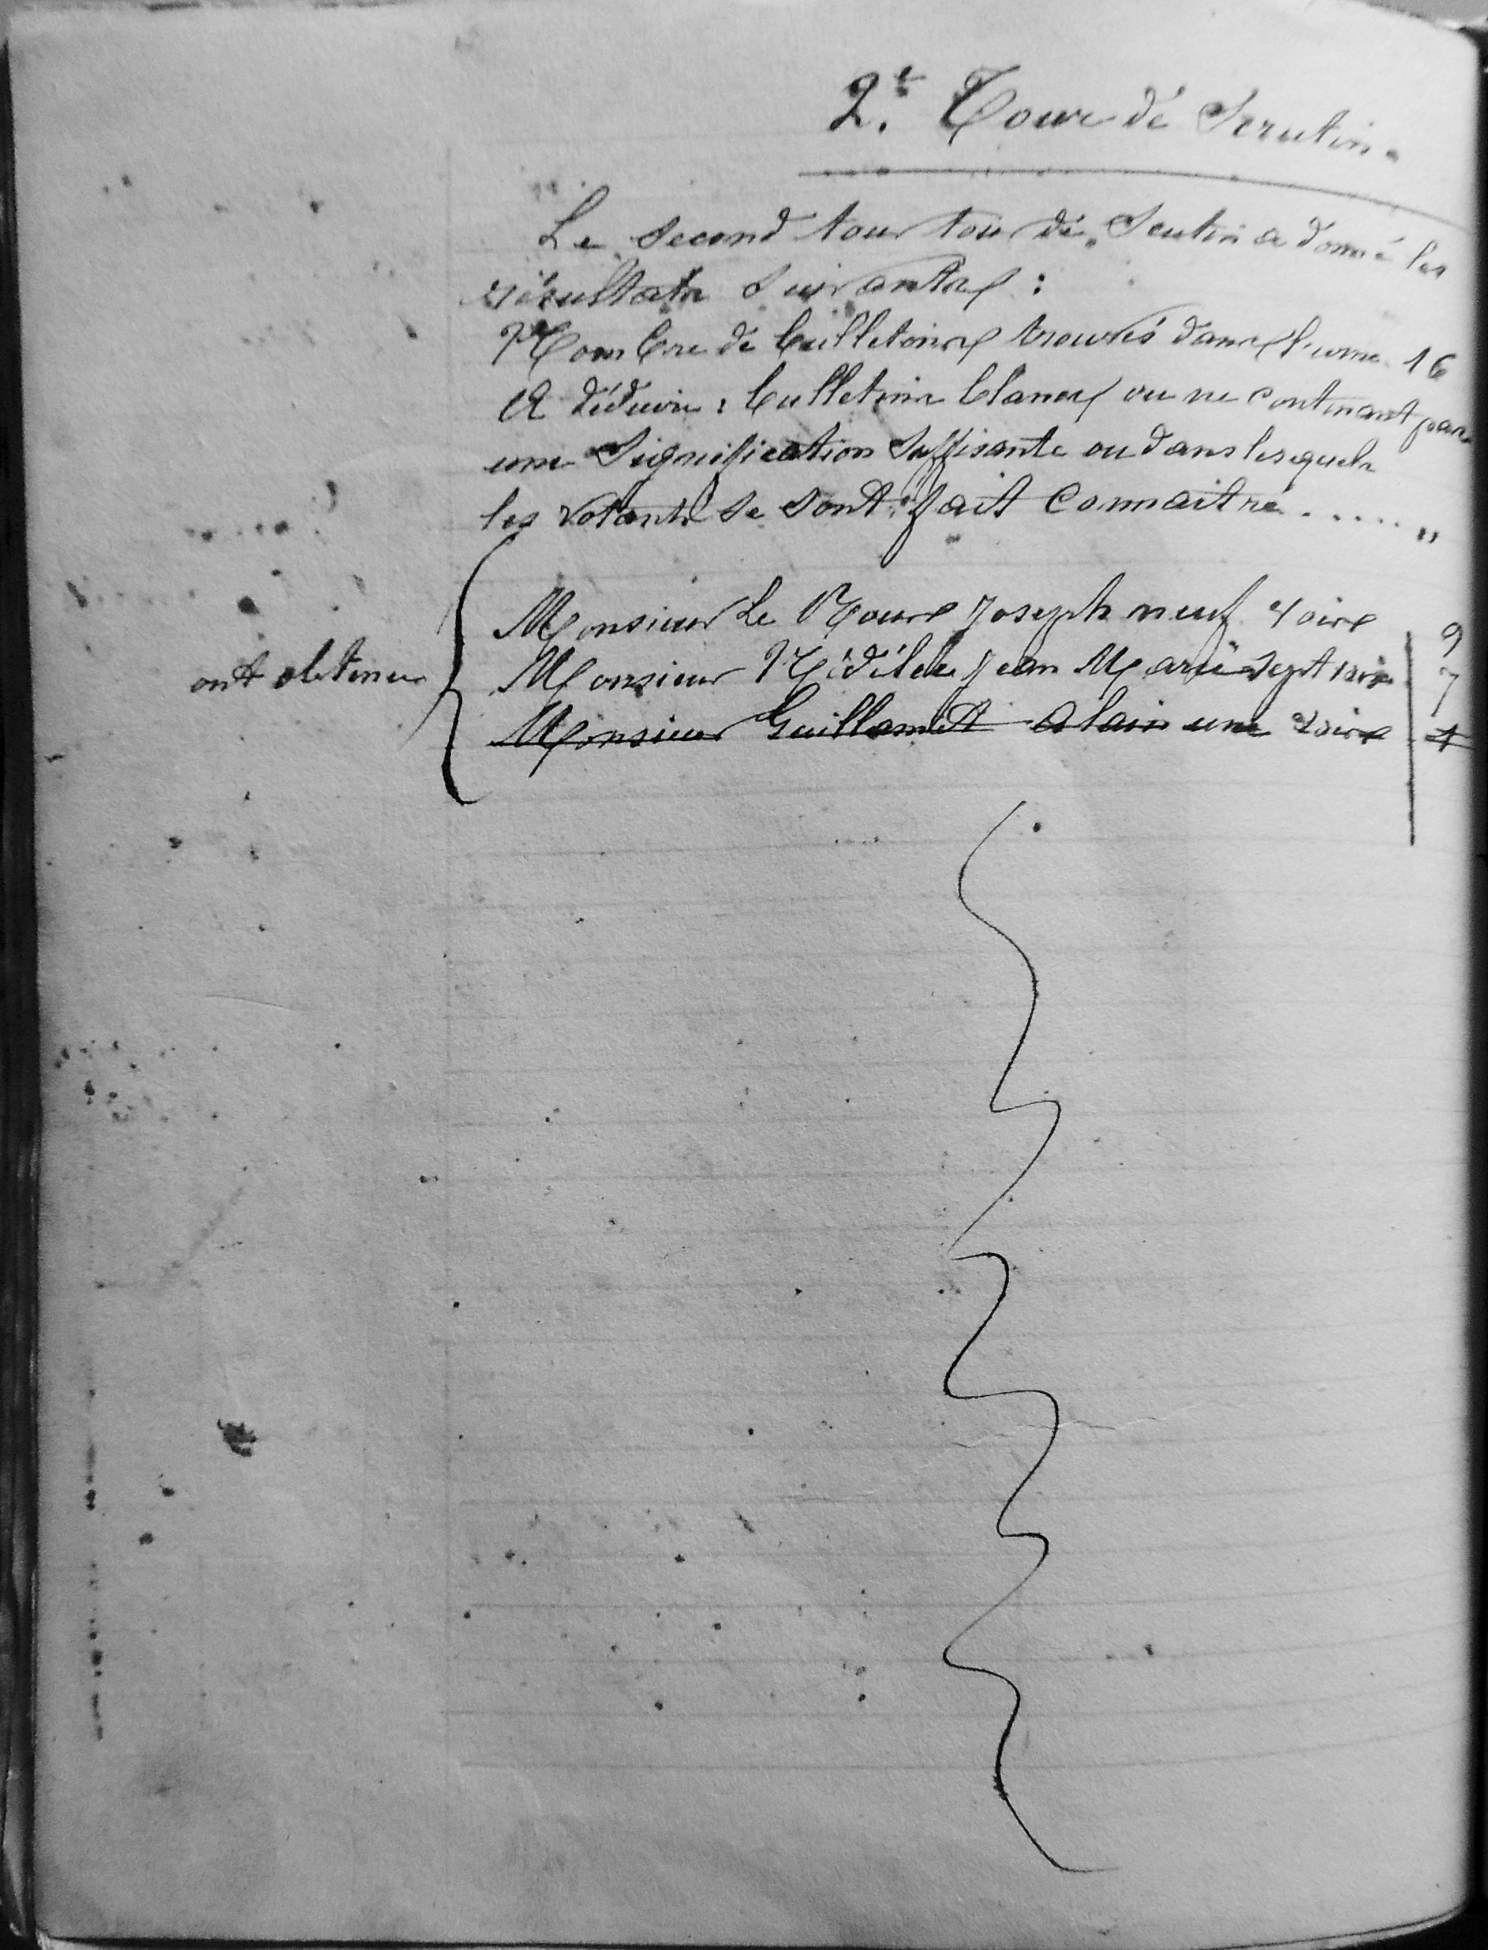 2.e Tour de Scrutin.
Le second tour tour de Scutin a donné les
résultats suivants :
Nombre de bulletins trouvés dans l'urne 16
A déduire : bulletins blancs ou ne contenant pas
une signification suffisante ou dans lesquels
les votants se sont fait connaître ...... "
Monsieur Le Roux Joseph neuf voix 9
ont obtenu
Monsieur Nédélec Jean Marie sept voix 7
Monsieur Guillamet Alain une voix 1